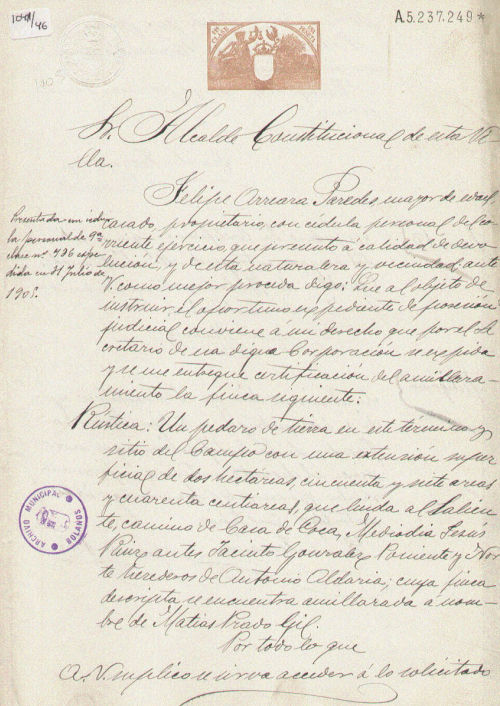 1041/46
A.5.237.249*
Sr. Alcalde Constitucional de esta Vi-
lla.
Felipe Arreara Paredes, mayor de edad,
casado, propietario, con cédula personal de co-
rriente ejercicio, que presento á calidad de devo-
lución, y de esta naturaleza y vecindad, ante
V. como mejor proceda digo: Que al objeto de
instruir el oportuno expediente de posesión
judicial conviene a mi derecho que por el Se-
cretario de esa digna Corporación se expida
y se me entregue certificación del amillara-
miento la finca siguiente:
Presentada su cédu-
la personal de 9ª
clase nº 736 expe-
dida en 31 Julio de
1908.
Rústica: Un pedazo de tierra en este termino y
sitio del Campo con una extensión super-
ficial de dos hectarias, cincuenta y siete areas
y cuarenta centiareas, que linda al Salien-
te, camino de Casa de Coca, Mediodia Jesus
Ruiz antes Jacinto Gonzalez Poniente y Nor-
te herederos de Antonio Aldaria; cuya finca
descripta se encuentra amillarada a nom-
bre de Matias Prado Gil.
Por todo lo que
A. V. suplico se sirva acceder á lo solicitado
ARCHIVO MUNICIPAL
BOLAÑOS